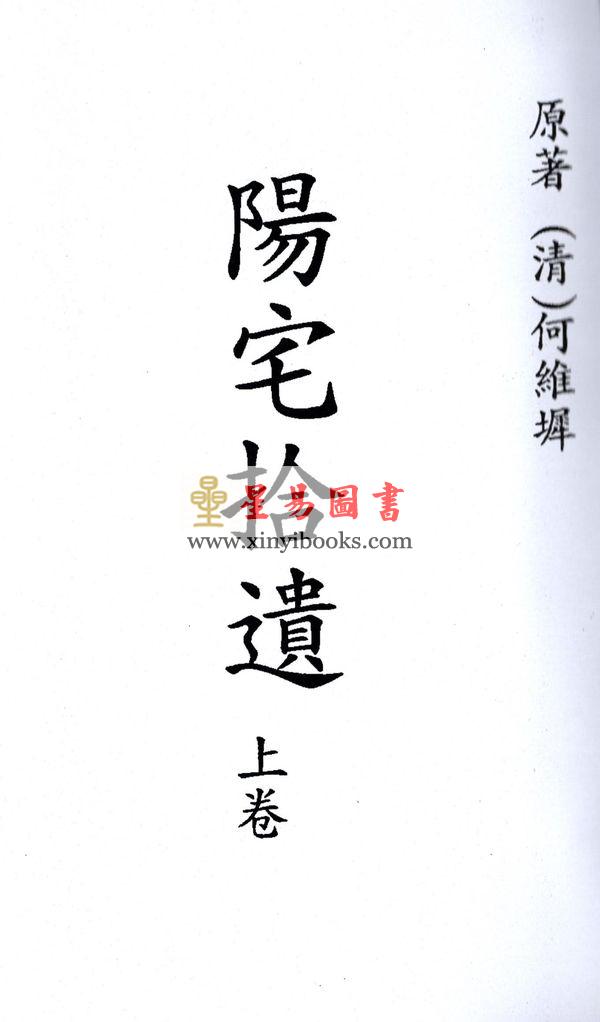 原著（清）何維墀
陽宅拾遺
上卷
星易圖書
www.xinyibooks.com